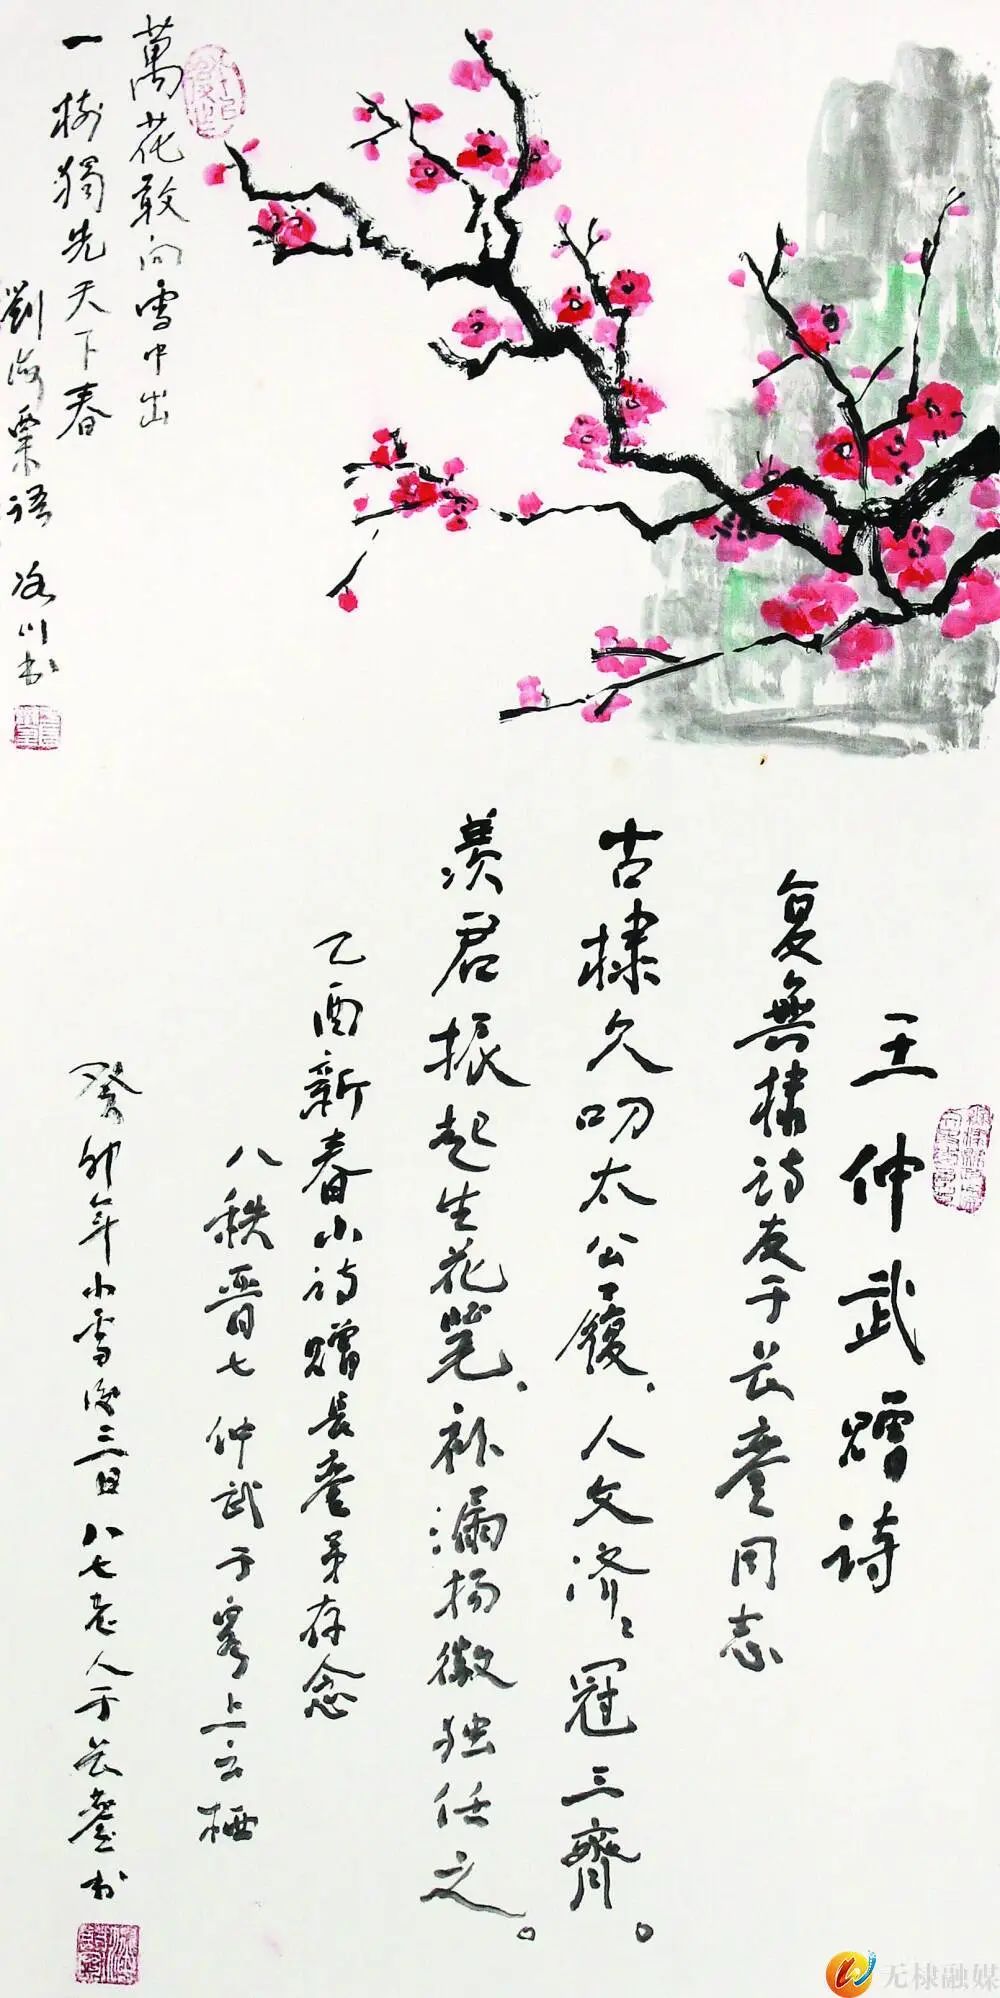 萬花敢向雪中出
一樹獨先天下春
劉海粟語
王仲武贈诗
复無棣诗友于长銮同志
古棣久叨太公履,人文济〻冠三齊。
羨君振起生花筆,补漏扬徽独任之。
乙酉新春小诗贈長銮弟存念
八秩晋七 仲武于客上云栖
癸卯年小雪後三日八七老人于长銮书
无棣融媒